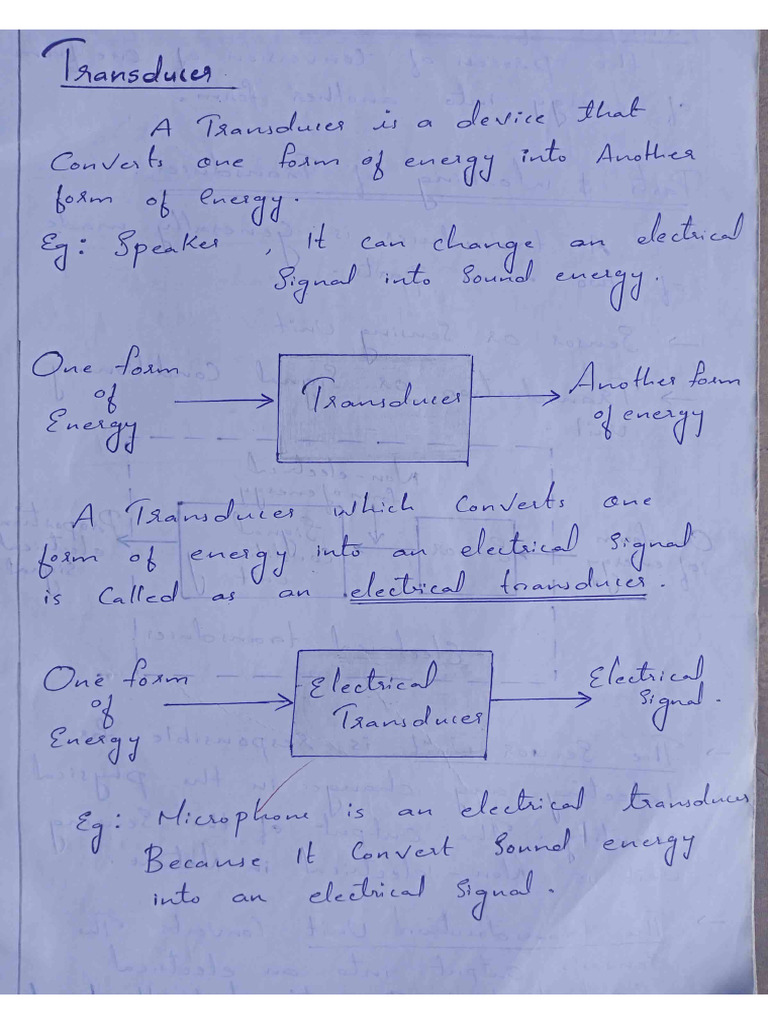 Transducer
A Transducer is a device that
Converts one form of energy into Another
form of energy.
Eg: Speaker, It can change an electrical
Signal into Sound energy.
One form
of
Energy
Transducer
Another form
of energy
A Transducer which converts one
form of energy into an electrical signal
is called as an electrical transducer.
One form
of
Energy
Electrical
Transducer
Electrical
Signal.
Eg: Microphone is an electrical transducer
Because It Convert Sound energy
into an electrical Signal.